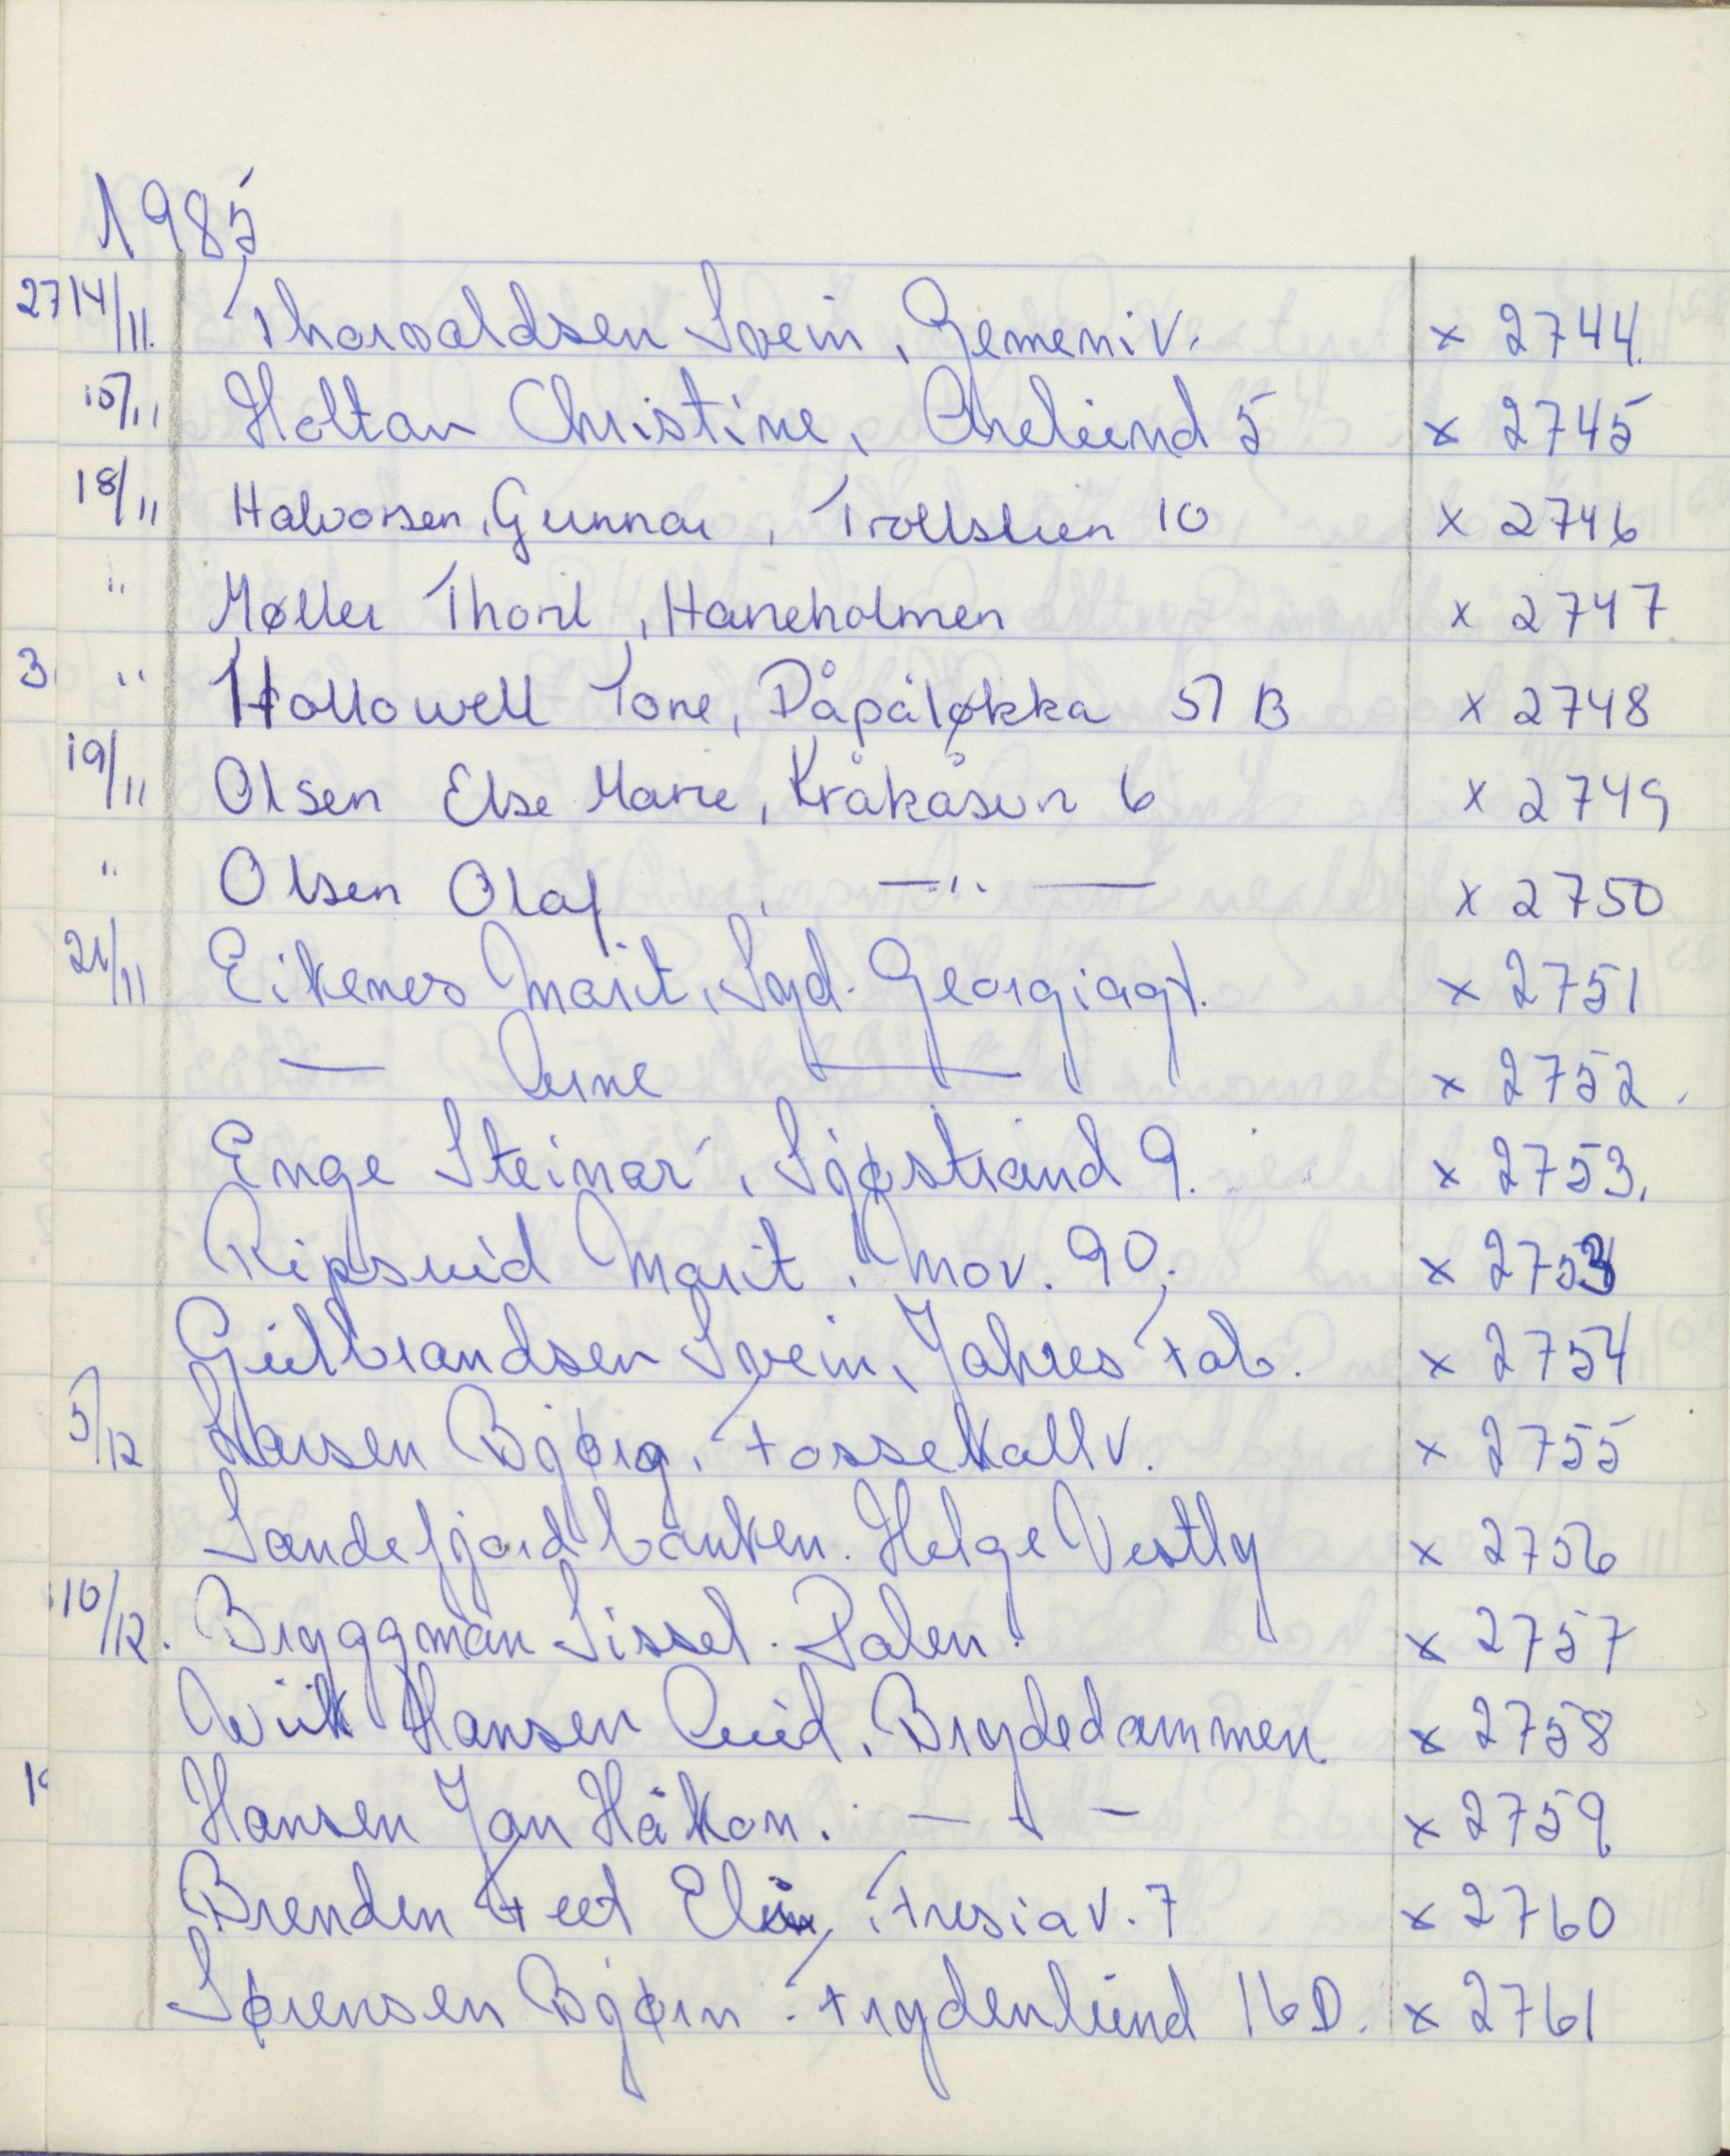 1985
27 14/11. Thorvaldsen Svein, Gemeniv. x 2744.
15/11 Holtan Christine, Ekelund 5 x 2745
18/11 Halvorsen, Gunnar, Trollstien 10 x 2746
" Møller Thoril, Haneholmen x 2747
3. " Hollowell Tone, Dåpåløkka 57 B x 2748
19/11 Olsen Else Marie, Kråkåsen 6 x 2749
" Olsen Olaf, —"— x 2750
21/11 Eikenes Marit, Syd. Georgiagt. x 2751
— Arne — x 2752.
Enge Steinar, Sjøstrand 9. x 2753.
Ripsrud Marit, Mov. 90. x 2753
Gulbrandsen Svein, Jahres Fab. x 2754
5/12 Larsen Bjørg, Fossekallv. x 2755
Sandefjordbanken. Helge Vestly x 2756
10/12. Bryggman Sissel. Dalen. x 2757
Wiik Hansen Aud, Brydedammen x 2758
Hansen Jan Håkon. — " — x 2759
Brenden Feet Elin, Fresiav. 7 x 2760
Sørensen Bjørn. Frydenlund 16 D. x 2761